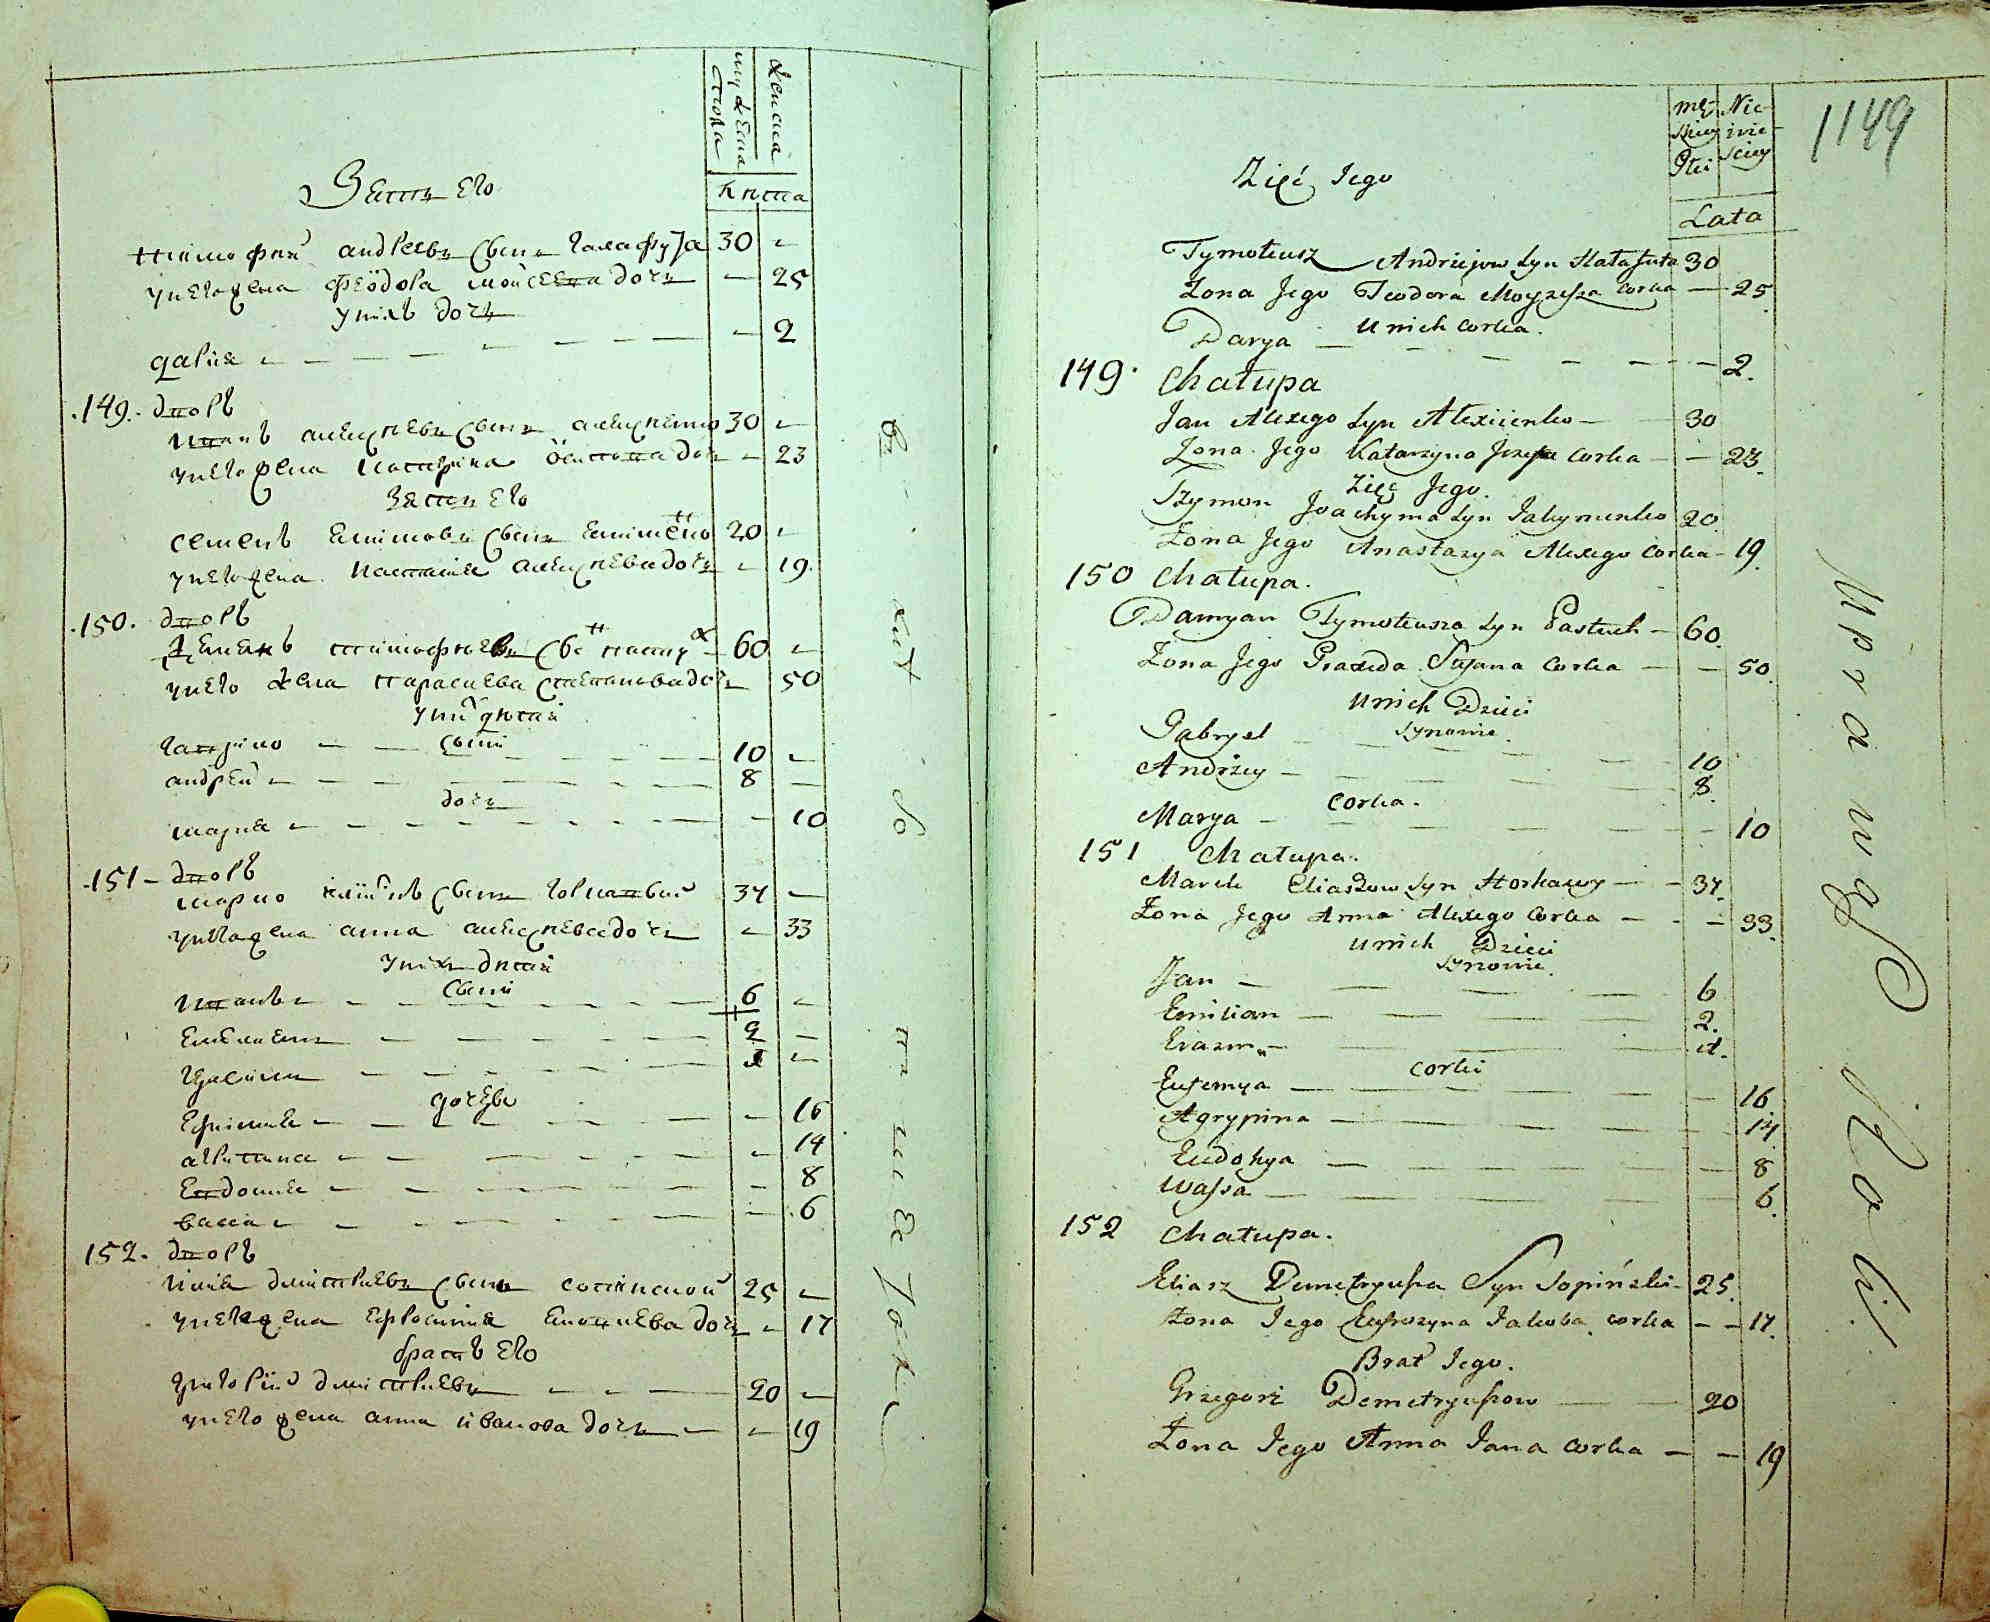 мужеска
пола
женска
лѣта
Зять его
тимофей андреевъ сынъ галафуза 30
у него жена феодора моисеева дочь — 25
у нихъ дочь
дария — 2
149. дворъ
иванъ алексѣевъ сынъ алексѣенко 30
у него жена катерина осипова дочь — 23
зять его
семенъ якимовъ сынъ якименко 20
у него жена настасия алексѣева дочь — 19
150. дворъ
демянъ тимофѣевъ сынъ пастух 60
у него жена параскева степанова дочь 50
у них дѣтей
гаврило — сыны 10
андрей — 8
дочь
мария — 10
151 – дворъ
марко илиинъ сынъ горкавый 34
у него жена анна алексѣева дочь — 33
у нихъ дѣтей
сыны
иванъ — 6
емелиянъ — 2
герасимъ — 1
дочери
ефимия — 16
агрипина — 14
евдокия — 8
васса — 6
152. дворъ
илия дмитриевъ сынъ сопинской 25
у него жена ефросиния яковлева дочь — 17
братъ его
григорий дмитриевъ — 20
у него жена анна иванова дочь — 19
1149
mę-
skiey
Płci
Nie-
wie-
sciey
Lata
Zięć Jego
Tymoteusz Andrzejow syn Hałafuta 30
Zona Jego Teodora Moyzesza corka — 25
u nich corka.
Darya — 2.
149. Chałupa
Jan Alexego syn Alexiienko — 30
Zona Jego Katarzyna Jozefa corka — 23.
Zięć Jego.
Szymon Joachyma syn Jakymenko 20
Zona Jego Anastazya Alexego corka — 19.
150 Chałupa.
Damyan Tymoteusza syn Pastuch — 60.
Zona Jego Praxeda Stefana corka — 50.
u nich Dzieci
synowie.
Gabryel — 10
Andrzey — 8.
corka.
Marya — 10
151 Chałupa.
Marek Eliaszow syn Horkawy — 34.
Zona Jego Anna Alexego corka — 33.
u nich Dzieci
synowie.
Jan — 6
Emilian — 2.
Erazm — 1.
corki
Eufemya — 16
Agrypina — 14
Eudokya — 8
Wassa — 6.
152 Chałupa.
Eliasz Demetryusza Syn Sopiński — 25.
Zona Jego Eufrozyna Jakoba corka — 17.
Brat Jego.
Grzegorz Demetryuszow — 20
Zona Jego Anna Jana corka — 19